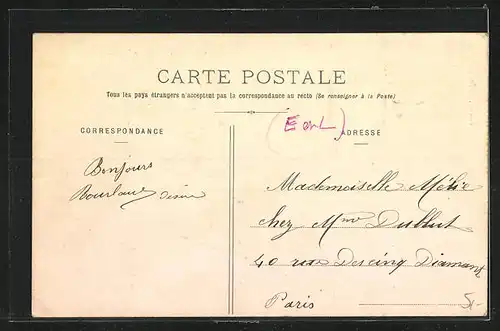 CARTE POSTALE
Tous les pays étrangers n'acceptent pas la correspondance au recto (Se renseigner à la Poste)
CORRESPONDANCE
(E et L)
ADRESSE
Bonjours
Mademoiselle Mélie
chez Mme Dublut
40 rue Des cinq Diamant
Paris